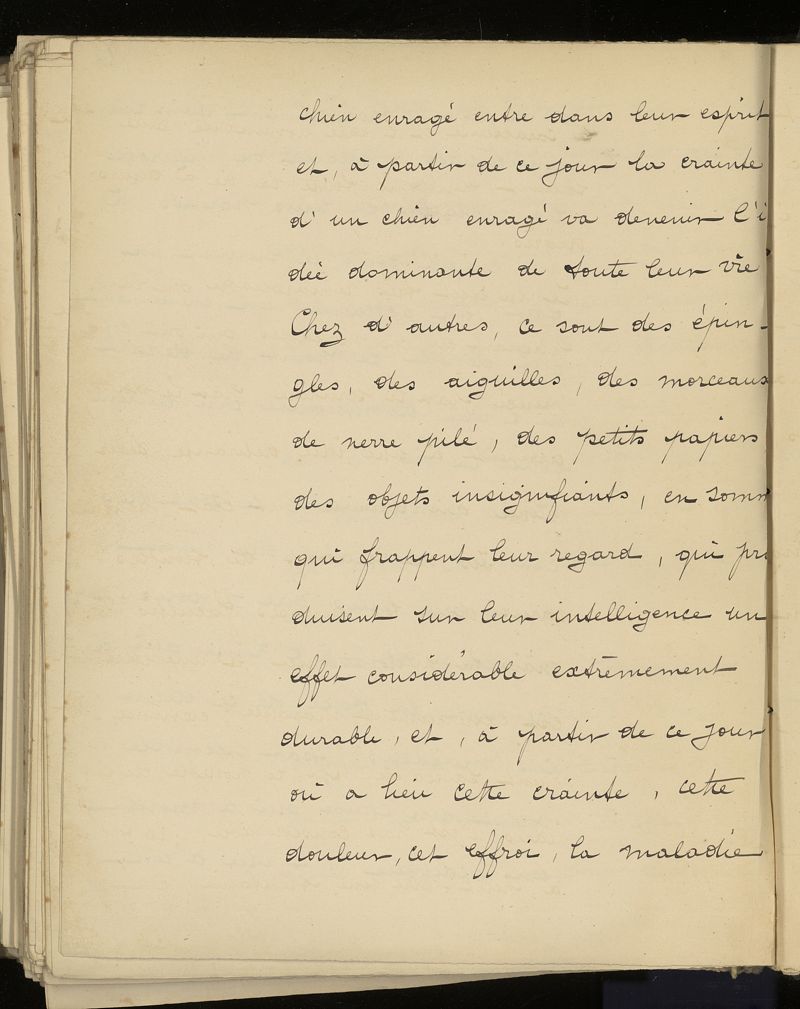 chien enragé entre dans leur esprit
et, à partir de ce jour la crainte
d'un chien enragé va devenir l'i
dée dominante de toute leur vie
Chez d'autres, ce sont des épin-
gles, des aiguilles, des morceaux
de verre pilé, des petits papiers
des objets insignifiants, en somm
qui frappent leur regard, qui pro
duisent sur leur intelligence un
effet considérable extrêmement
durable, et, à partir de ce jour
où a lieu cette crainte, cette
douleur, cet effroi, la maladie